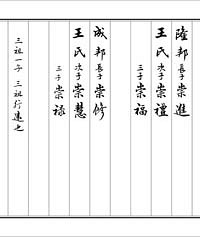 陸邦長子崇進
王氏次子崇禮
三子崇福
成邦長子崇修
王氏次子崇慧
三子崇禄
三祖一子 三祖行達也